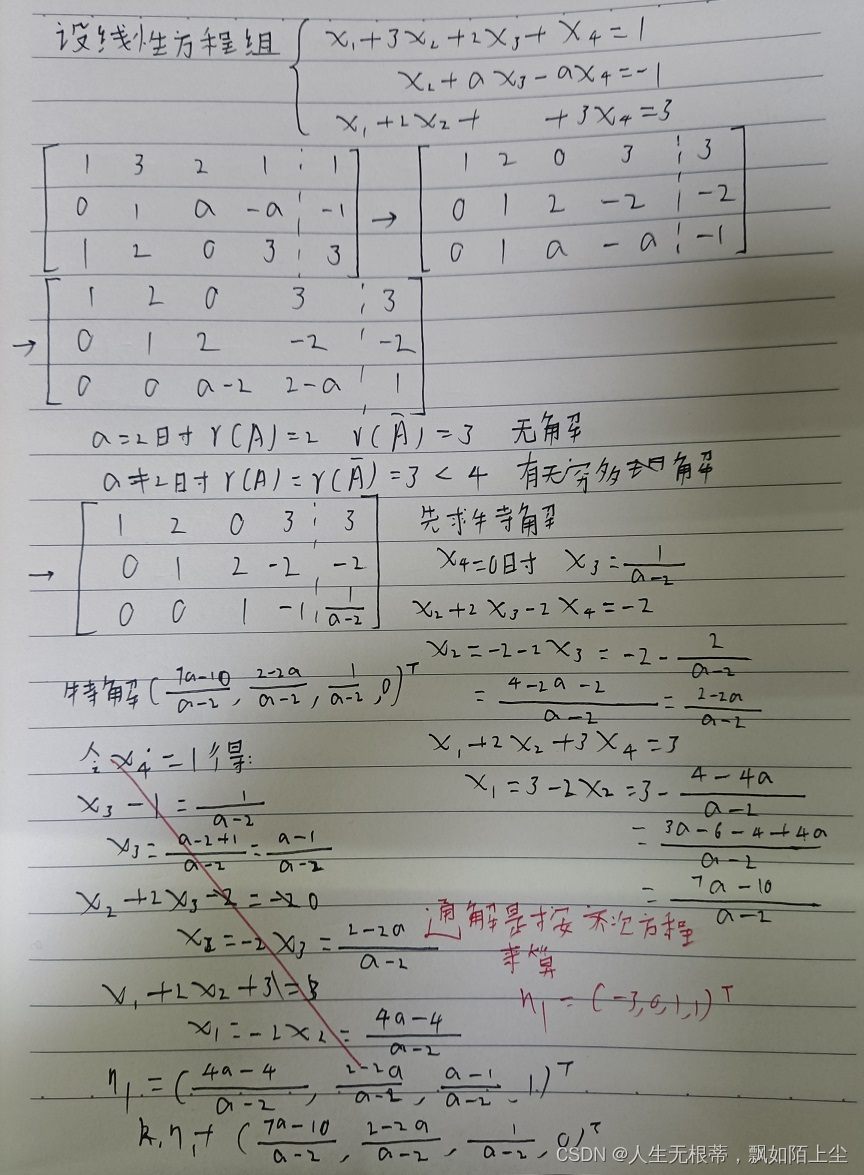 设线性方程组 { x₁+3x₂+2x₃+x₄=1
x₂+ax₃-ax₄=-1
x₁+2x₂+ +3x₄=3
[ 1 3 2 1 ¦ 1 ] → [ 1 2 0 3 ¦ 3 ]
[ 0 1 a -a ¦ -1 ] [ 0 1 2 -2 ¦ -2 ]
[ 1 2 0 3 ¦ 3 ] [ 0 1 a -a ¦ -1 ]
→ [ 1 2 0 3 ¦ 3 ]
[ 0 1 2 -2 ¦ -2 ]
[ 0 0 a-2 2-a ¦ 1 ]
a=2时 r(A)=2 r(Ā)=3 无解
a≠2时 r(A)=r(Ā)=3<4 有无穷多解
→ [ 1 2 0 3 ¦ 3 ]
[ 0 1 2 -2 ¦ -2 ]
[ 0 0 1 -1 ¦ 1/(a-2) ]
先求特解
x₄=0时 x₃=1/(a-2)
x₂+2x₃-2x₄=-2
x₂=-2-2x₃=-2-2/(a-2)
=(4-2a-2)/(a-2)=(2-2a)/(a-2)
x₁+2x₂+3x₄=3
x₁=3-2x₂=3-(4-4a)/(a-2)
=(3a-6-4+4a)/(a-2)
=(7a-10)/(a-2)
特解((7a-10)/(a-2), (2-2a)/(a-2), 1/(a-2), 0)ᵀ
令x₄=1得:
x₃-1=1/(a-2)
x₃=(a-2+1)/(a-2)=(a-1)/(a-2)
x₂+2x₃-2=-20
x₂=-2x₃=(2-2a)/(a-2)
x₁+2x₂+3=3
x₁=-2x₂=(4a-4)/(a-2)
η₁=((4a-4)/(a-2), (2-2a)/(a-2), (a-1)/(a-2), 1)ᵀ
k₁η₁+((7a-10)/(a-2), (2-2a)/(a-2), 1/(a-2), 0)ᵀ
通解是按齐次方程
来算
η₁=(-3,0,1,1)ᵀ
CSDN @人生无根蒂，飘如陌上尘